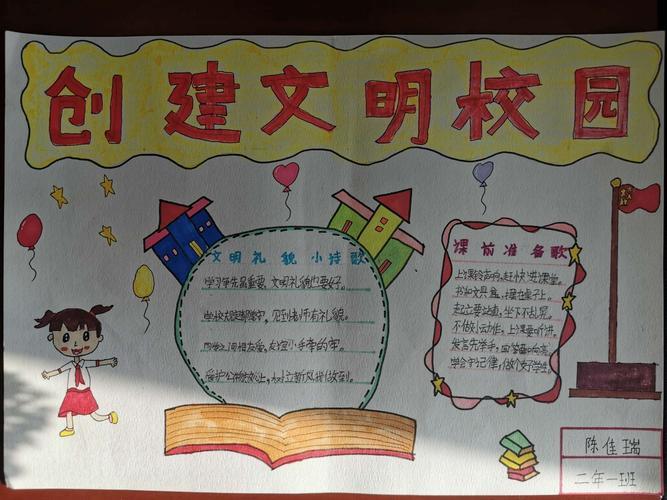 创建文明校园
文明礼貌小诗歌
学习争先最重要，文明礼貌也要好。
学校规定都遵守，见到老师有礼貌。
同学之间相友爱，
爱护公物放心上，树立新风我做到。
课前准备歌
上课铃声响，赶快进课堂。
书和文具盒，摆在桌子上。
起立要站直，坐下不乱晃。
不做小动作，上课要听讲。
发言先举手，回答要响亮。
学会守纪律，做个好学生。
陈佳瑞
二年一班